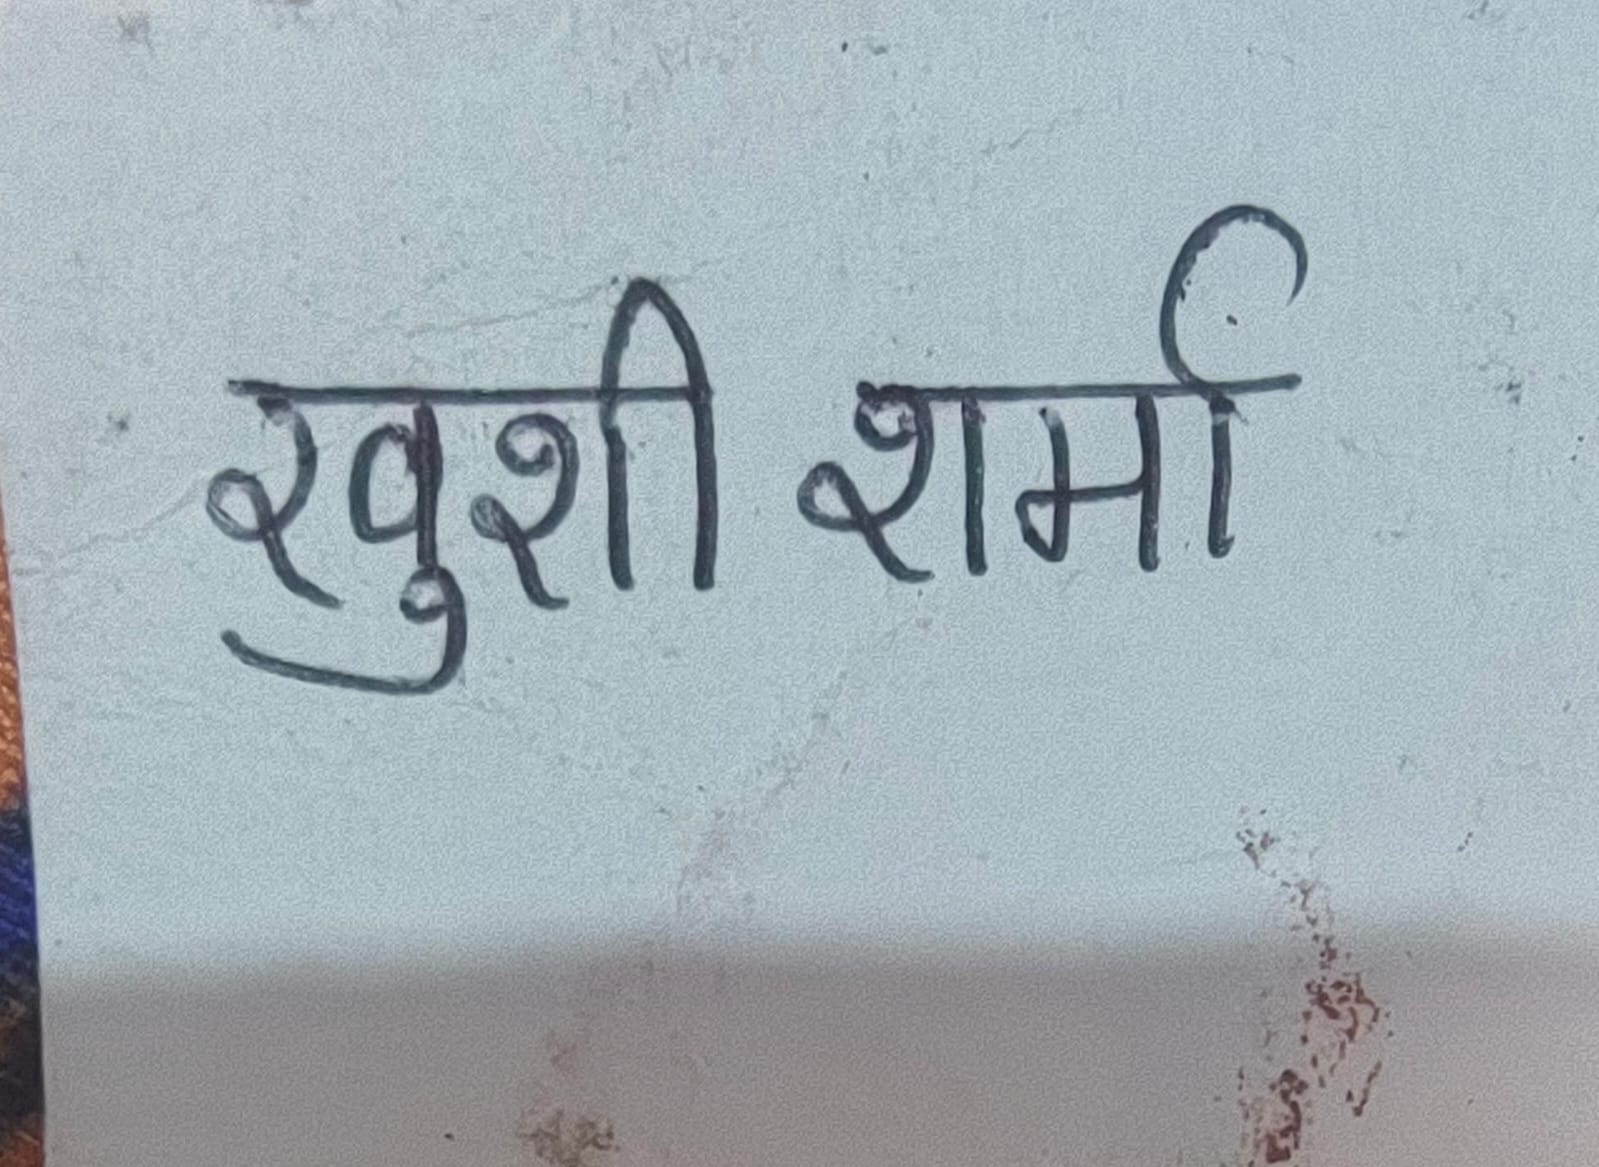 खुशी शर्मा